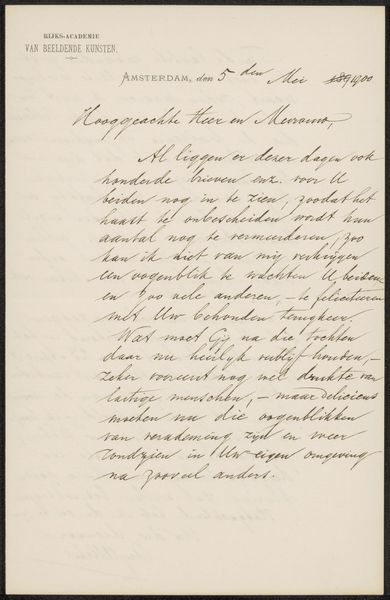 RIJKS-ACADEMIE
VAN BEELDENDE KUNSTEN.
AMSTERDAM, den 5 den Mei 1900
Hooggeachte Heer en Mevrouw,
Al liggen er dezer dagen ook
honderde brieven enz. voor U
beiden nog in te zien, zoodat het
haast te onbescheiden wordt hun
aantal nog te vermeerderen, zoo
kan ik niet van mij verkrijgen
een oogenblik te wachten U beiden
en zoo vele anderen, – te feliciteeren
met Uw behouden terugkeer.
Wat moet Gij na die tochten
daar nu heerlijk verblijf houden, –
zeker vooreerst nog met drukte van
lastige menschen, – maar delicieus
moeten nu die oogenblikken
van verademing zijn en weer
rondzien in Uw eigen omgeving
na zooveel anders.